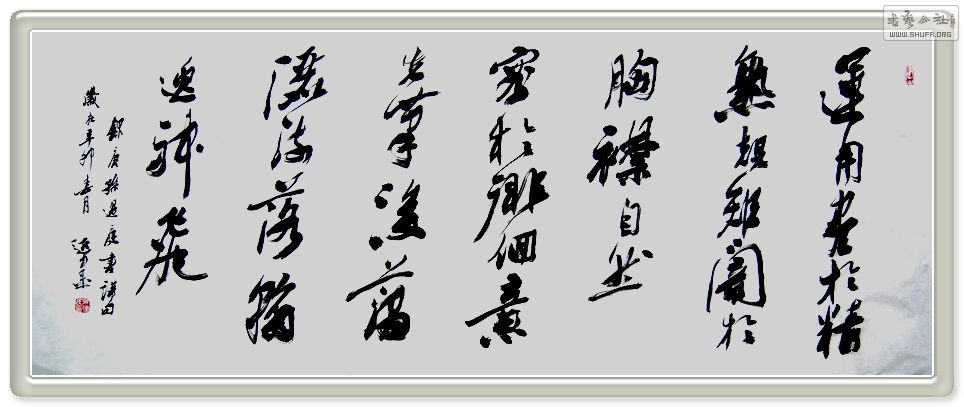 運用盡於精
熟規矩闇於
胸襟自然
容於徘徊意
先筆後瀟
灑流落翰
逸神飛
錄唐孫過庭書譜句
歲在辛卯春月
书艺公社
WWW.SHUFA.ORG